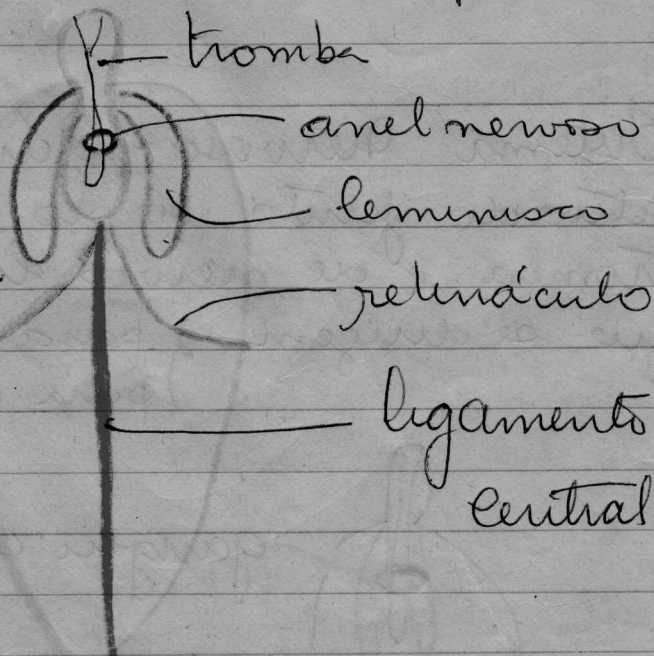 tromba
anel nervoso
leminisco
retináculo
ligamento
central